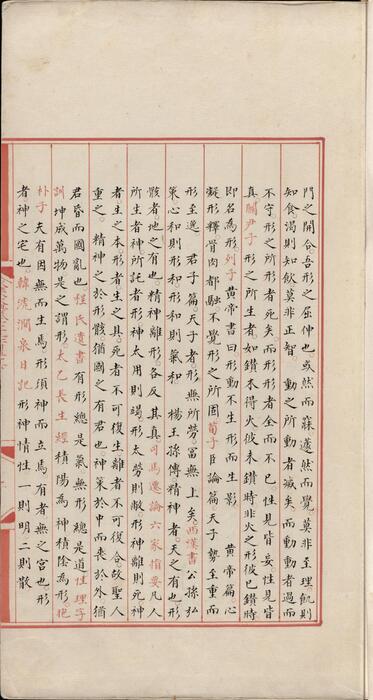 門之開合吾形之屈伸也或然而寐蘧然而覺莫非至理飢則
知食渴則知飲莫非正智 動之所動者臧矣而動動者過而
不守形之所形者死矣而形形者全而不亡性見皆妄性見皆
真關尹子形之所生者如鑽木得火彼未鑽時非火之形彼已鑽時
即名為形列子黄帝書曰形動不生形而生影 黄帝篇心
凝形釋骨肉都融不覺形之所固荀子臣論篇天子勢至重而
形至逸 君子篇天子者形無所勞冨無上矣西漢書公孫弘
策心和則形和形和則氣和 楊王孫傳精神者天之有也形
骸者地之有也精神離形各反其真司馬遷論六家指要凡人
所生者神所託者形神太用則竭形太勞則敝形神離則死神
者生之本形者生之具死者不可復生離者不可復合故聖人
重之 精神之於形骸猶國之有君也神策於中而喪於外猶
君昏而國亂也程氏遺書有形總是氣無形總是道性理字
訓坤成萬物是之謂形太乙長生經積陽為神積陰為形抱
朴子夫有因無而生焉形須神而立焉有者無之宮也形
者神之宅也韓淲澗泉日記形神情性一則明二則散